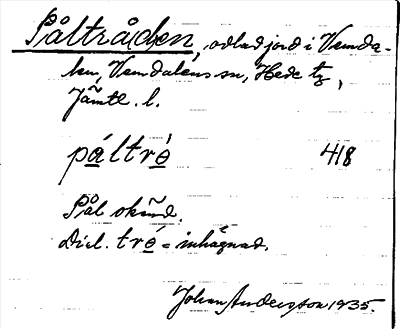 Påltråden, odlad jord i Vemda-
len, Vemdalens sn, Hede tg,
Jämtl. l.
páltró̱ 418
Pål okänd.
Dial. tró̱ = inhägnad.
Johan Andersson 1935.